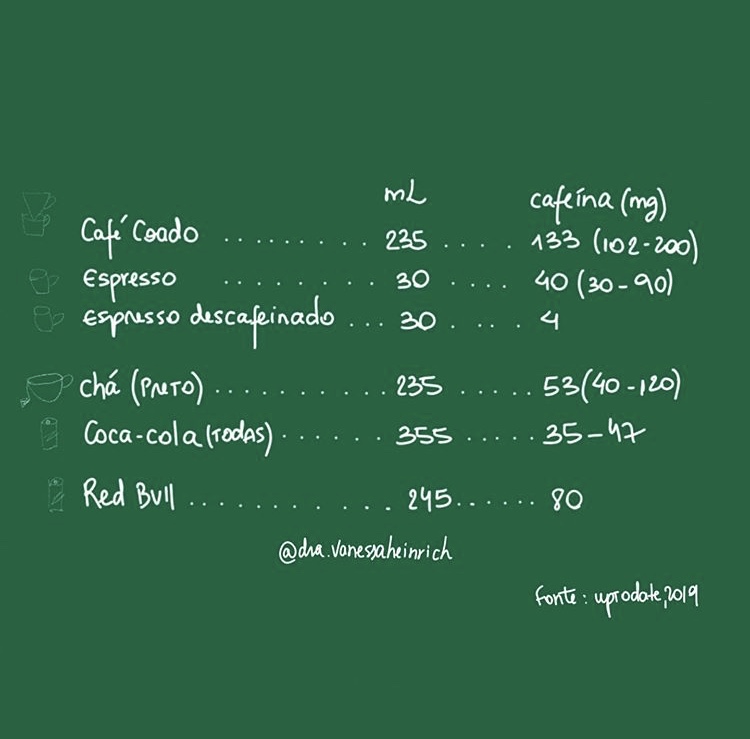 mL cafeína (mg)
Café Coado ......... 235 .... 133 (102-200)
Espresso ......... 30 .... 40 (30-90)
Espresso descafeinado ... 30 .... 4
chá (PRETO) ........... 235 ..... 53 (40-120)
Coca-cola (TODAS) ...... 355 ..... 35-47
Red Bull ............ 245 ...... 80
@dra.vanessaheinrich
Fonte: uptodate, 2019